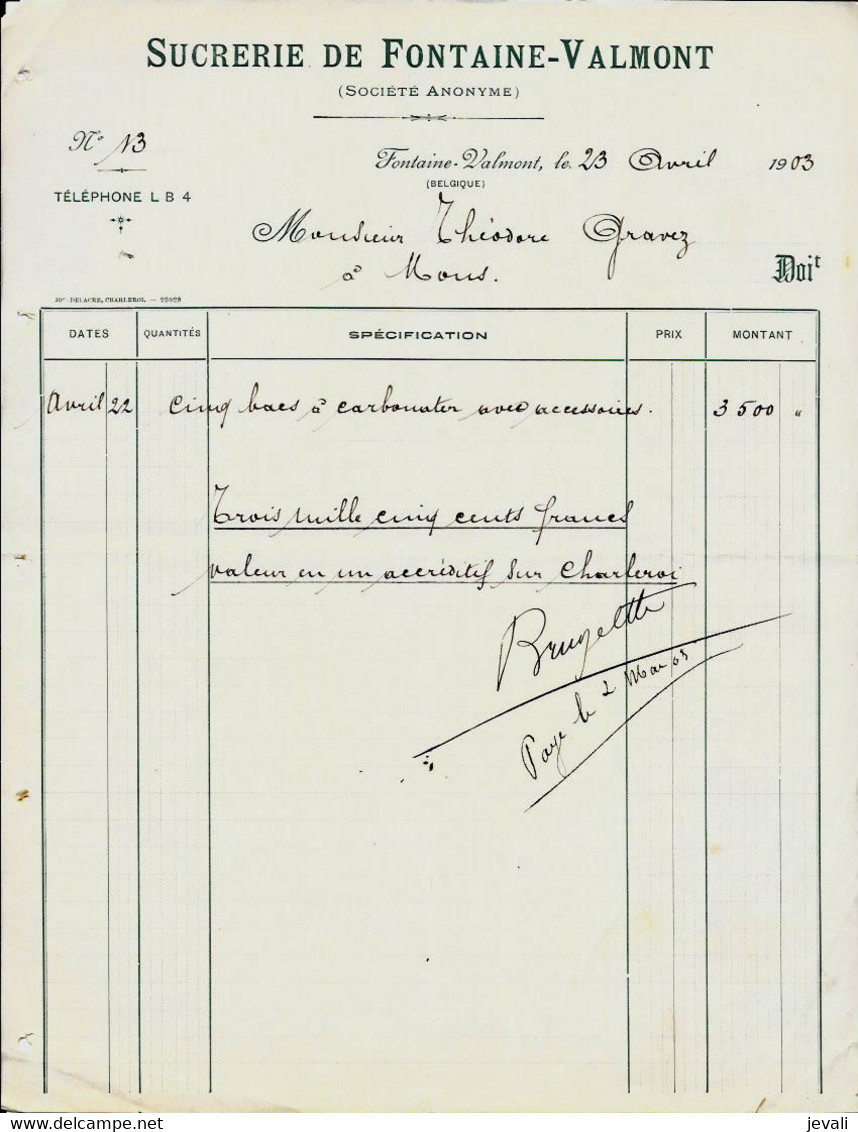 SUCRERIE DE FONTAINE-VALMONT
(SOCIÉTÉ ANONYME)
No 13
Fontaine-Valmont, le 23 Avril 1903
(BELGIQUE)
TÉLÉPHONE L B 4
Monsieur Théodore Gravez
à Mons.
Doit
DELACRE, CHARLEROI. — 29028
DATES QUANTITÉS SPÉCIFICATION PRIX MONTANT
Avril 22 Cinq bacs à carbonater avec accessoires. 3500 "
Trois mille cinq cents francs
valeur en un accréditif sur Charleroi
Brugelette
Payé le 2 Mai 03
delcampe.net
jevali